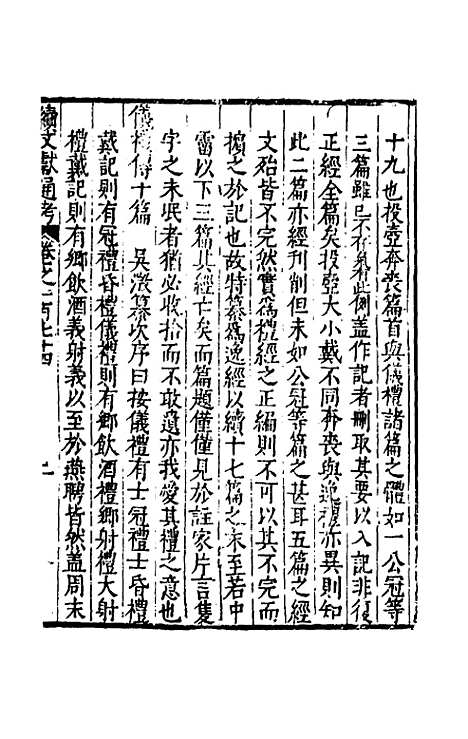 十九也投壺奔喪篇首與儀禮諸篇之體如一公冠等
三篇雖已不存此例蓋作記者刪取其要以入記非復
正經全篇矣投壺大小戴不同奔喪與逸禮亦異則知
此二篇亦經刊削但未如公冠等篇之甚耳五篇之經
文殆皆不完然實爲禮經之正編則不可以其不完而
擯之於記也故特纂爲逸經以續十七篇之末至若中
霤以下三篇其經亡矣而篇題僅僅見於註家片言隻
字之未泯者猶必收拾而不敢遺亦我愛其禮之意也
儀禮傳十篇 吳澂纂次序曰按儀禮有士冠禮士昏禮
戴記則有冠禮昏禮儀禮則有鄉飲酒禮鄉射禮大射
禮戴記則有鄉飲酒義射義以至於燕聘皆然蓋周末
續文獻通考 卷之一百七十四 七